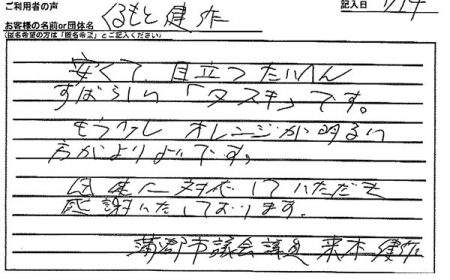 ご利用者の声
お客様の名前or団体名 くるもと 健作
(匿名希望の方は「匿名希望」とご記入ください)
記入日 1/14
安くて 目立つ たいへん
すばらしい 「タスキ」です。
もう少し オレンジが明るい
方がよりよいです。
に対応していただき
感謝いたしております。
蒲郡市議会議員 来本 健作